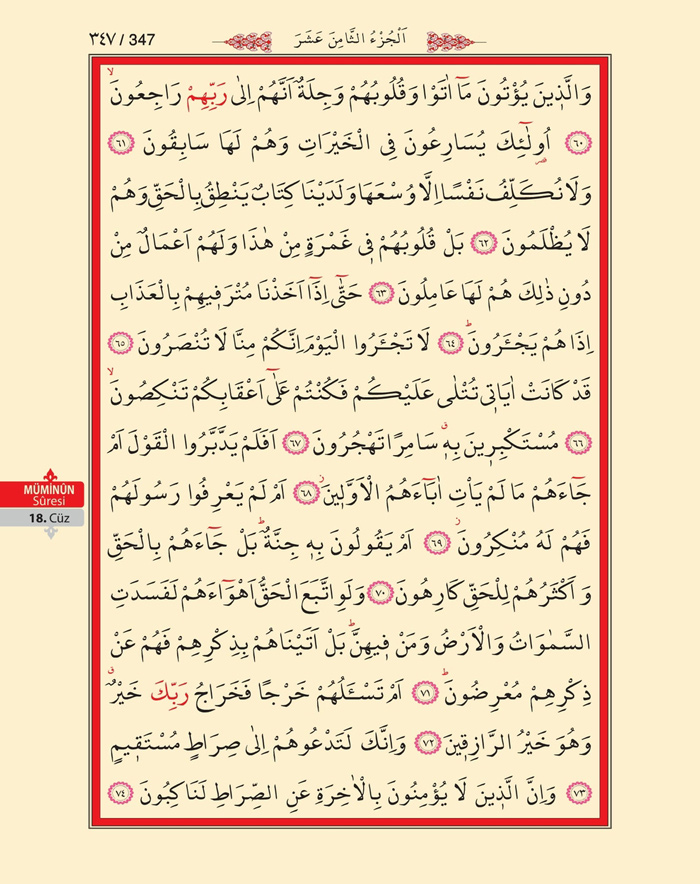 ٣٤٧ / 347
اَلْجُزْءُ الثَّامِنَ عَشَرَ
وَالَّذ۪ينَ يُؤْتُونَ مَٓا اٰتَوْا وَقُلُوبُهُمْ وَجِلَةٌ اَنَّهُمْ اِلٰى رَبِّهِمْ رَاجِعُونَۙ
﴿٦٠﴾ اُو۬لٰٓئِكَ يُسَارِعُونَ فِي الْخَيْرَاتِ وَهُمْ لَهَا سَابِقُونَ ﴿٦١﴾
وَلَا نُكَلِّفُ نَفْسًا اِلَّا وُسْعَهَا وَلَدَيْنَا كِتَابٌ يَنْطِقُ بِالْحَقِّ وَهُمْ
لَا يُظْلَمُونَ ﴿٦٢﴾ بَلْ قُلُوبُهُمْ ف۪ي غَمْرَةٍ مِنْ هٰذَا وَلَهُمْ اَعْمَالٌ مِنْ
دُونِ ذٰلِكَ هُمْ لَهَا عَامِلُونَ ﴿٦٣﴾ حَتّٰٓى اِذَٓا اَخَذْنَا مُتْرَف۪يهِمْ بِالْعَذَابِ
اِذَا هُمْ يَجْـَٔرُونَۜ ﴿٦٤﴾ لَا تَجْـَٔرُوا الْيَوْمَ اِنَّكُمْ مِنَّا لَا تُنْصَرُونَ ﴿٦٥﴾
قَدْ كَانَتْ اٰيَات۪ي تُتْلٰى عَلَيْكُمْ فَكُنْتُمْ عَلٰٓى اَعْقَابِكُمْ تَنْكِصُونَۙ
﴿٦٦﴾ مُسْتَكْبِر۪ينَ بِه۪ۗ سَامِرًا تَهْجُرُونَ ﴿٦٧﴾ اَفَلَمْ يَدَّبَّرُوا الْقَوْلَ اَمْ
جَٓاءَهُمْ مَا لَمْ يَأْتِ اٰبَٓاءَهُمُ الْاَوَّل۪ينَۘ ﴿٦٨﴾ اَمْ لَمْ يَعْرِفُوا رَسُولَهُمْ
فَهُمْ لَهُ مُنْكِرُونَۘ ﴿٦٩﴾ اَمْ يَقُولُونَ بِه۪ جِنَّةٌۜ بَلْ جَٓاءَهُمْ بِالْحَقِّ
وَ اَكْثَرُهُمْ لِلْحَقِّ كَارِهُونَ ﴿٧٠﴾ وَلَوِ اتَّبَعَ الْحَقُّ اَهْوَٓاءَهُمْ لَفَسَدَتِ
السَّمٰوَاتُ وَالْاَرْضُ وَمَنْ ف۪يهِنَّۜ بَلْ اَتَيْنَاهُمْ بِذِكْرِهِمْ فَهُمْ عَنْ
ذِكْرِهِمْ مُعْرِضُونَۜ ﴿٧١﴾ اَمْ تَسْـَٔلُهُمْ خَرْجًا فَخَرَاجُ رَبِّكَ خَيْرٌۗ
وَهُوَ خَيْرُ الرَّازِق۪ينَ ﴿٧٢﴾ وَاِنَّكَ لَتَدْعُوهُمْ اِلٰى صِرَاطٍ مُسْتَق۪يمٍ
﴿٧٣﴾ وَاِنَّ الَّذ۪ينَ لَا يُؤْمِنُونَ بِالْاٰخِرَةِ عَنِ الصِّرَاطِ لَنَاكِبُونَ ﴿٧٤﴾
MÜMİNÛN
Sûresi
18. Cüz